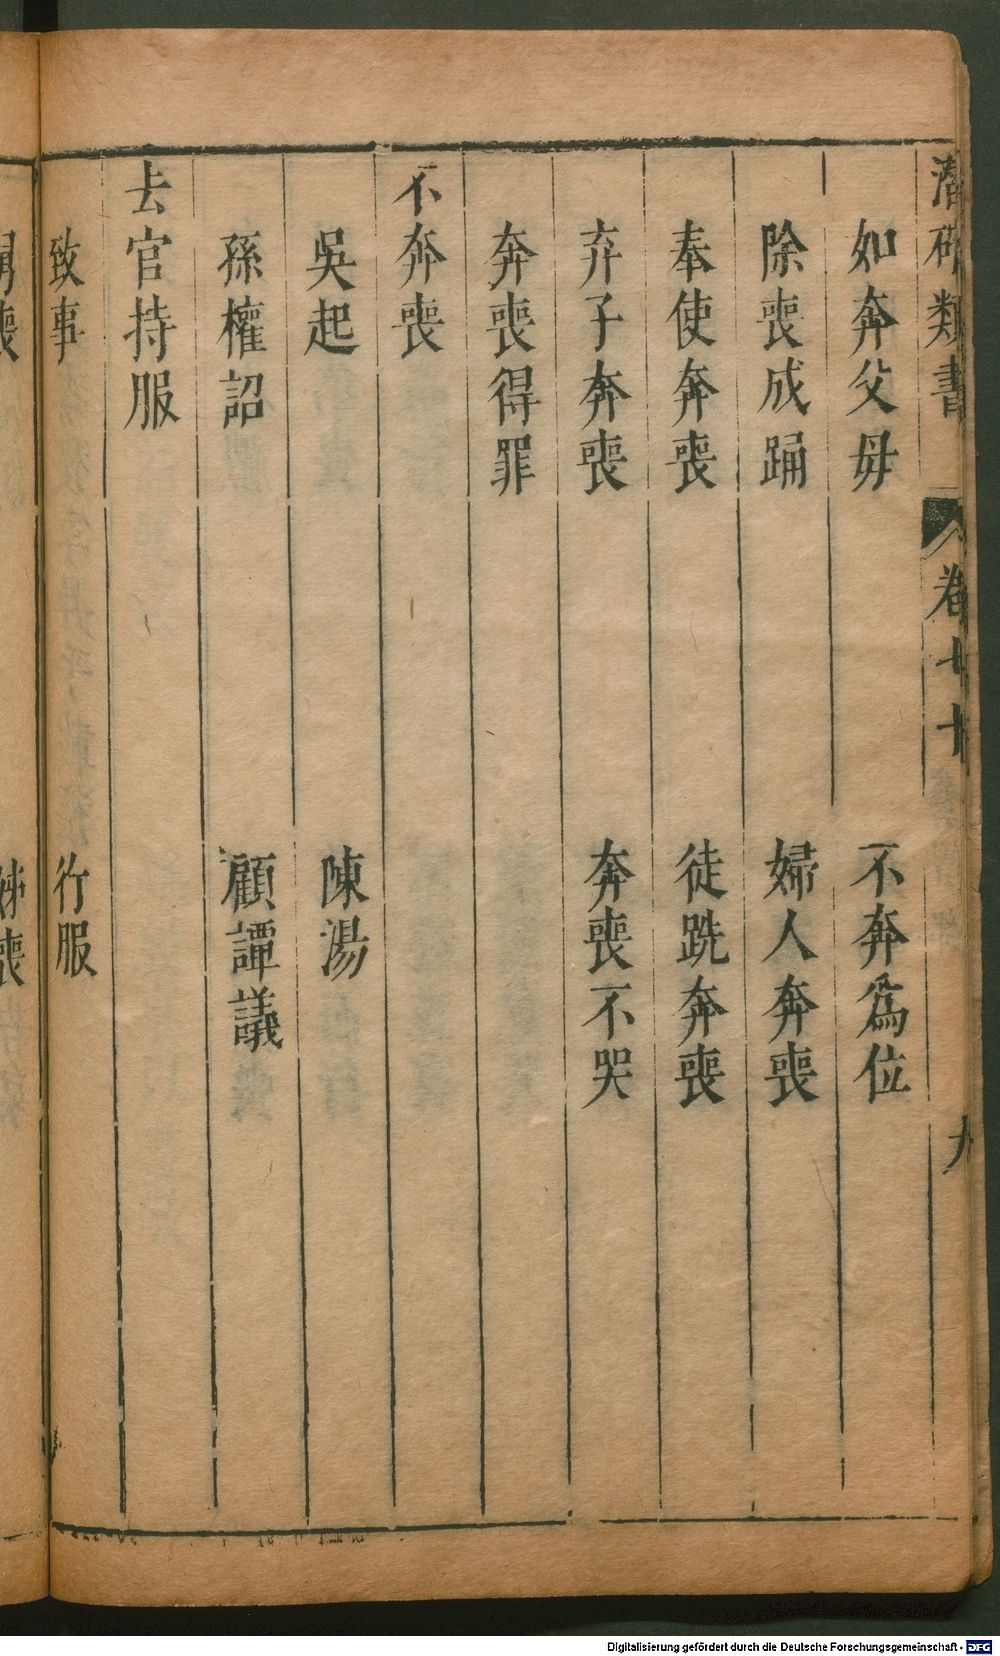 潛確類書 卷七十 九
如奔父母 不奔爲位
除喪成踊 婦人奔喪
奉使奔喪 徒跣奔喪
弃子奔喪 奔喪不哭
奔喪得罪
不奔喪
吳起 陳湯
孫權詔 顧譚議
去官持服
致事 行服
舅喪 姊喪
Digitalisierung gefördert durch die Deutsche Forschungsgemeinschaft - DFG